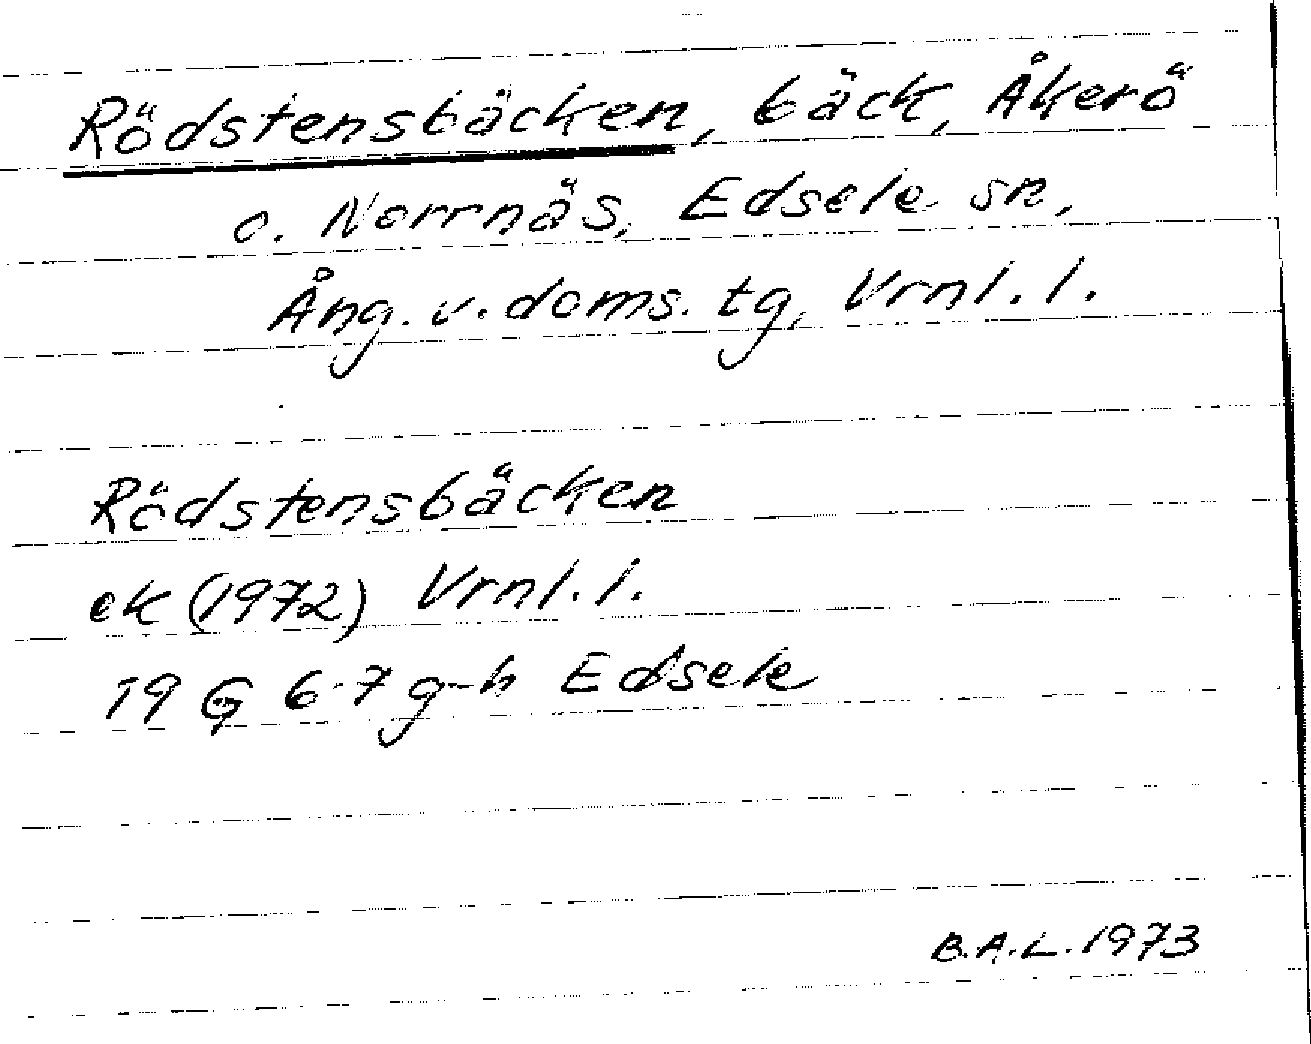 Rödstensbäcken, bäck, Åkerö
o. Norrnäs, Edsele sn,
Ång. v. doms. tg, Vrnl. l.
Rödstensbäcken
ek (1972) Vrnl. l.
19 G 6-7 g-h Edsele
B.A.L. 1973